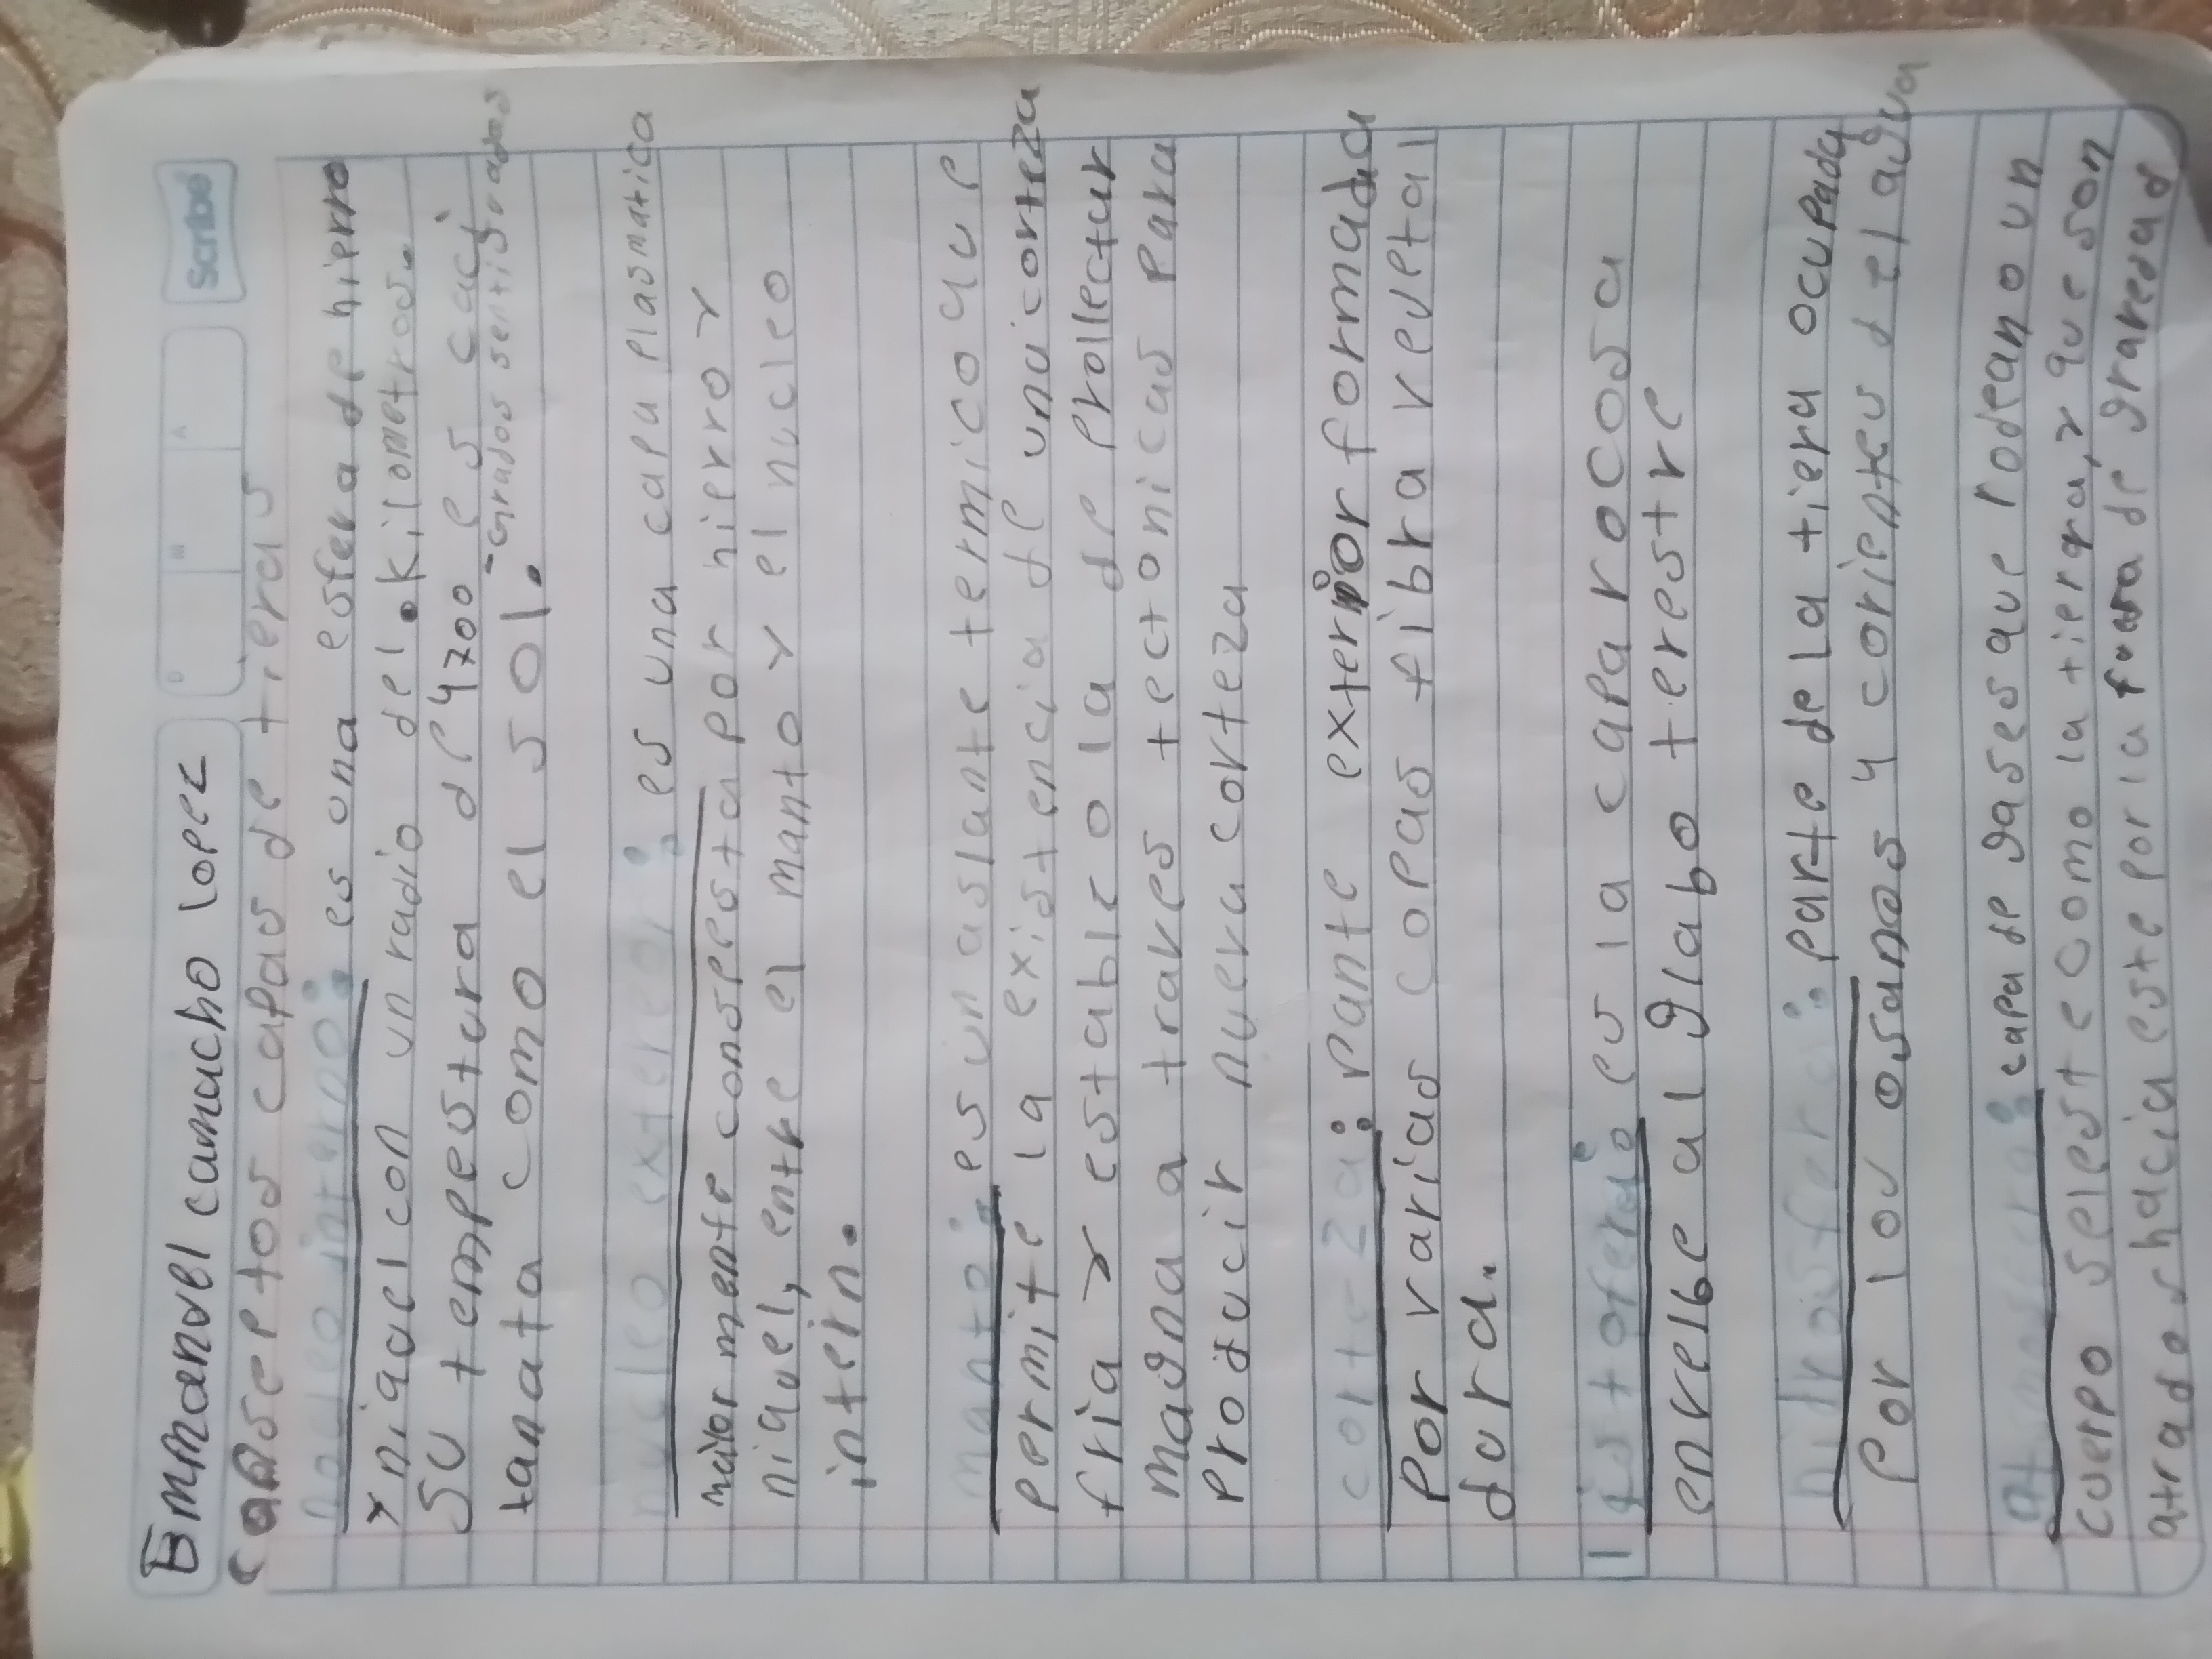 Emmanuel camacho lopez
Scribe
D M A
conseptos capas de tieras
nocleo interno: es una esfera de hierro
y niquel con un radio del . kilometros.
su tempestura de 4700 es caci
-grados sentigrados
tanata como el sol.
nucleo exterior: es una capa plasmatica
mailor mente conspesta por hierro y
niquel, entre el manto y el nucleo
intein.
manto: es un aslante termico que
permite la existencia de una corteza
fria y estable o la de prollectar
magna a traves tectonicas para
producir nueva corteza
corteza: pante exterior formada
por varias copas fibra vegetal
dura.
listofera: es la capa rocosa
envelbe al glabo terestre
hidrosfera: parte de la tiera ocupada
por los osanos y corientes del agua
atmosfera: capa de gases que rodean o un
cuerpo selest e como la tierra, y que son
atrados hacia este por la fuersa de gravedad